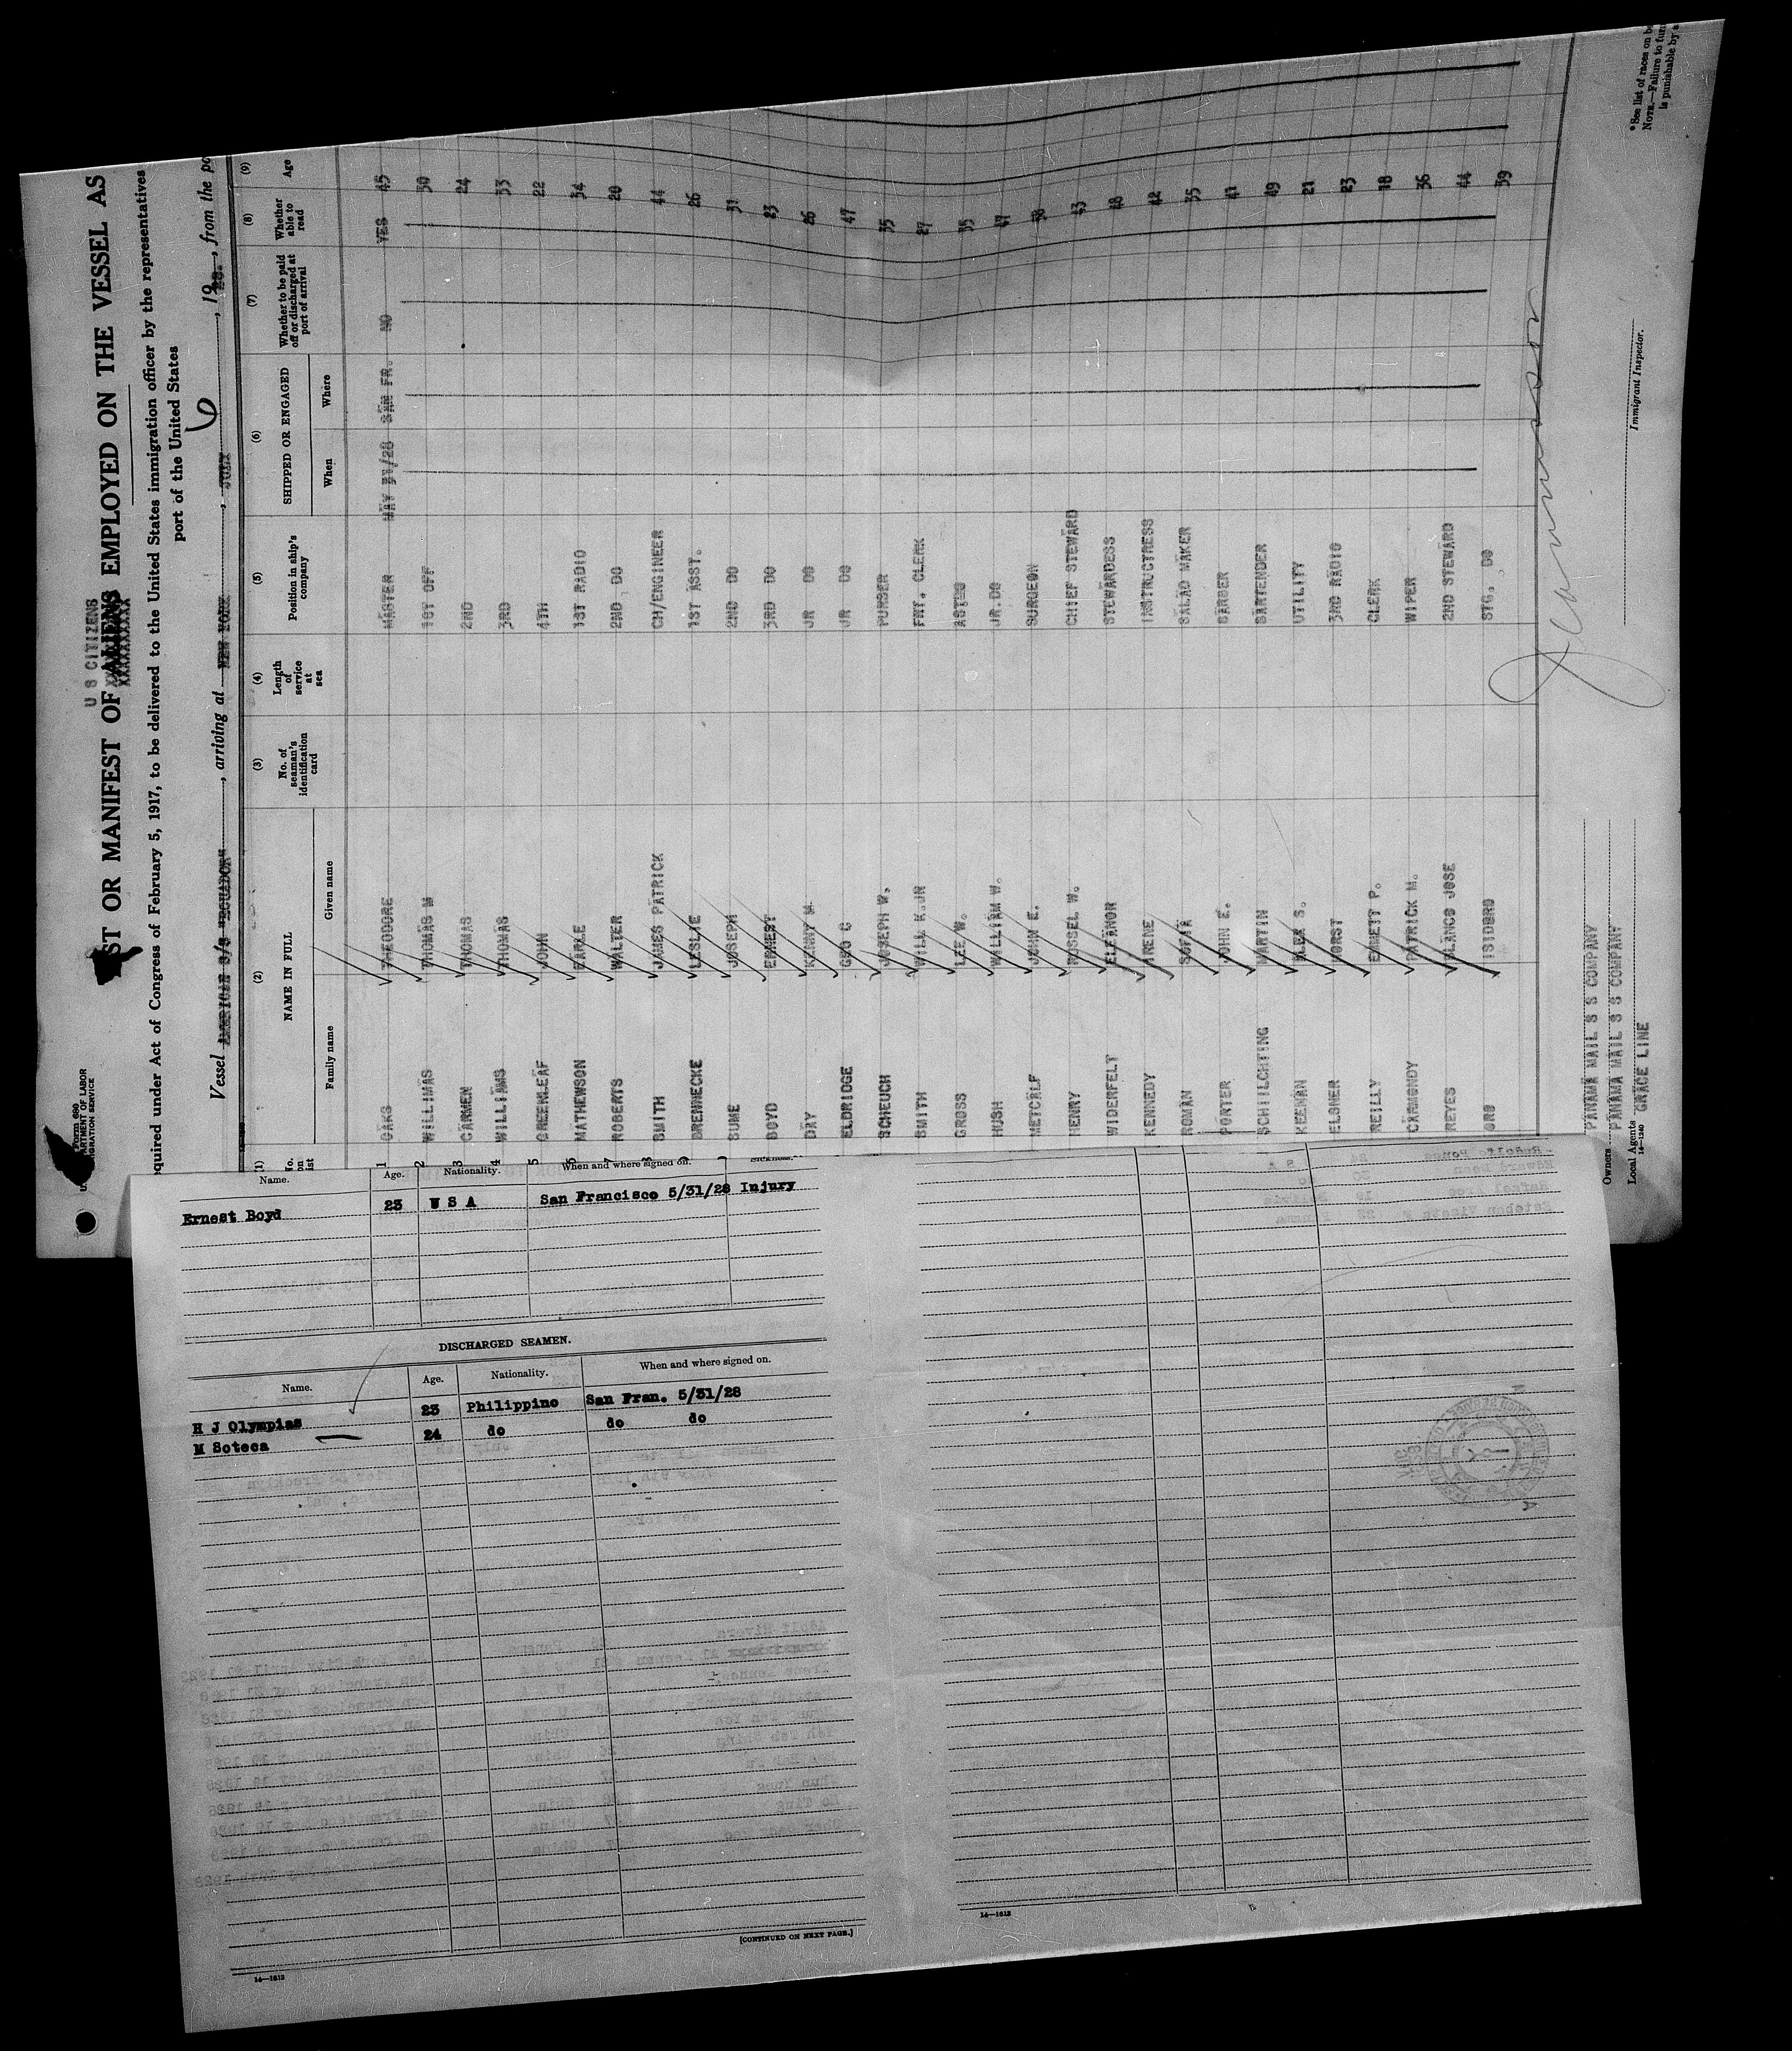 Form 680
U S CITIZENS
ST OR MANIFEST OF ALIENS EMPLOYED ON THE VESSEL AS
XXXXXXXXX
equired under Act of Congress of February 5, 1917, to be delivered to the United States immigration officer by the representatives
port of the United States
Vessel AMERICAN S/S "ECUADOR", arriving at NEW YORK, JULY 6, 1928., from the po
(1) (2) (3) (4) (5) (6) (7) (8) (9)
NAME IN FULL No. of seaman's identification card Length of service at sea Position in ship's company SHIPPED OR ENGAGED Whether to be paid off or discharged at port of arrival Whether able to read Age
Family name Given name When Where
1 OAKS THEODORE MASTER MAY 31/28 SAN FR. NO YES 45
2 WILLIMAS THOMAS M 1ST OFF. 30
3 CARMEN THOMAS 2ND 24
4 WILLIAMS THOMAS 3RD 33
5 GREENLEAF JOHN 4TH 22
6 MATHEWSON EARLE 1ST RADIO 34
7 ROBERTS WALTER 2ND DO 20
8 SMITH JAMES PATRICK CH/ENGINEER 44
9 BRENNECKE LESLIE 1ST ASST. 26
SUME JOSEPH 2ND DO 31
BOYD ERNEST 3RD DO 23
DAY KENNY M. JR DO 26
ELDRIDGE GEO C JR DO 47
SCHEUCH JOSEPH W. PURSER 35
SMITH WILL K.JN FRT. CLERK 27
GROSS LEE W. 35
HUSH WILLIAM W. JR.DO 47
METCALF JOHN E. SURGEON 38
HENRY RUSSEL W. CHIEF STEWARD 43
WIDERFELT ELEANOR STEWARDESS 48
KENNEDY IRENE INSTRUCTRESS 42
ROMAN SOFIA SALAD MAKER 35
PORTER JOHN E. BARBER 41
SCHIILCHTING MARTIN BARTENDER 49
KEENAN ALEX S. UTILITY 21
ELSNER HORST 3RD RADIO 23
REILLY EMMETT P. CLERK 18
CARMONDY PATRICK M. WIPER 36
REYES BLANCO JOSE 2ND STEWARD 44
ORO ISIDORO STG. DO 39
Owners PANAMA MAIL S S COMPANY
PANAMA MAIL S S COMPANY
Local Agents GRACE LINE
14—1240
Immigrant Inspector.
*See list of races on b
NOTE.—Failure to fur
is punishable by a
Name. Age. Nationality. When and where signed on.
Ernest Boyd 23 U S A San Francisco 5/31/28 Injury
DISCHARGED SEAMEN.
Name. Age. Nationality. When and where signed on.
H J Olympias 23 Philippino San Fran. 5/31/28
M Soteca 24 do do do
[CONTINUED ON NEXT PAGE.]
14—1613
14—1613